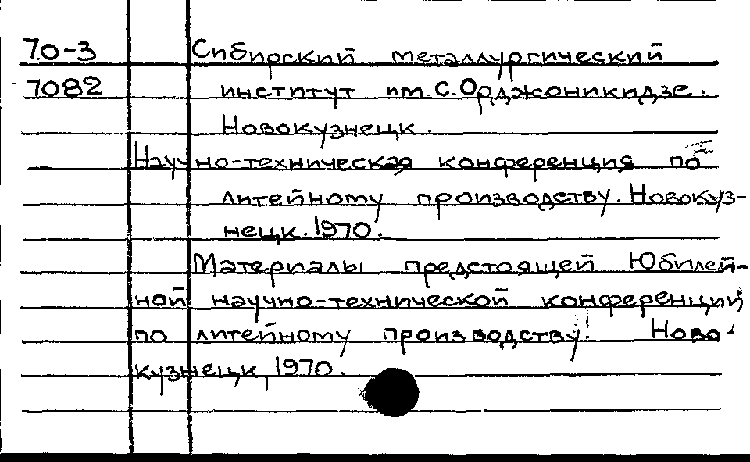 70-3 Сибирский металлургический
7082 институт им. С. Орджоникидзе.
Новокузнецк.
Научно-техническая конференция по
литейному производству. Новокуз-
нецк. 1970.
Материалы предстоящей Юбилей-
ной научно-технической конференции
по литейному производству. Ново-
кузнецк, 1970.